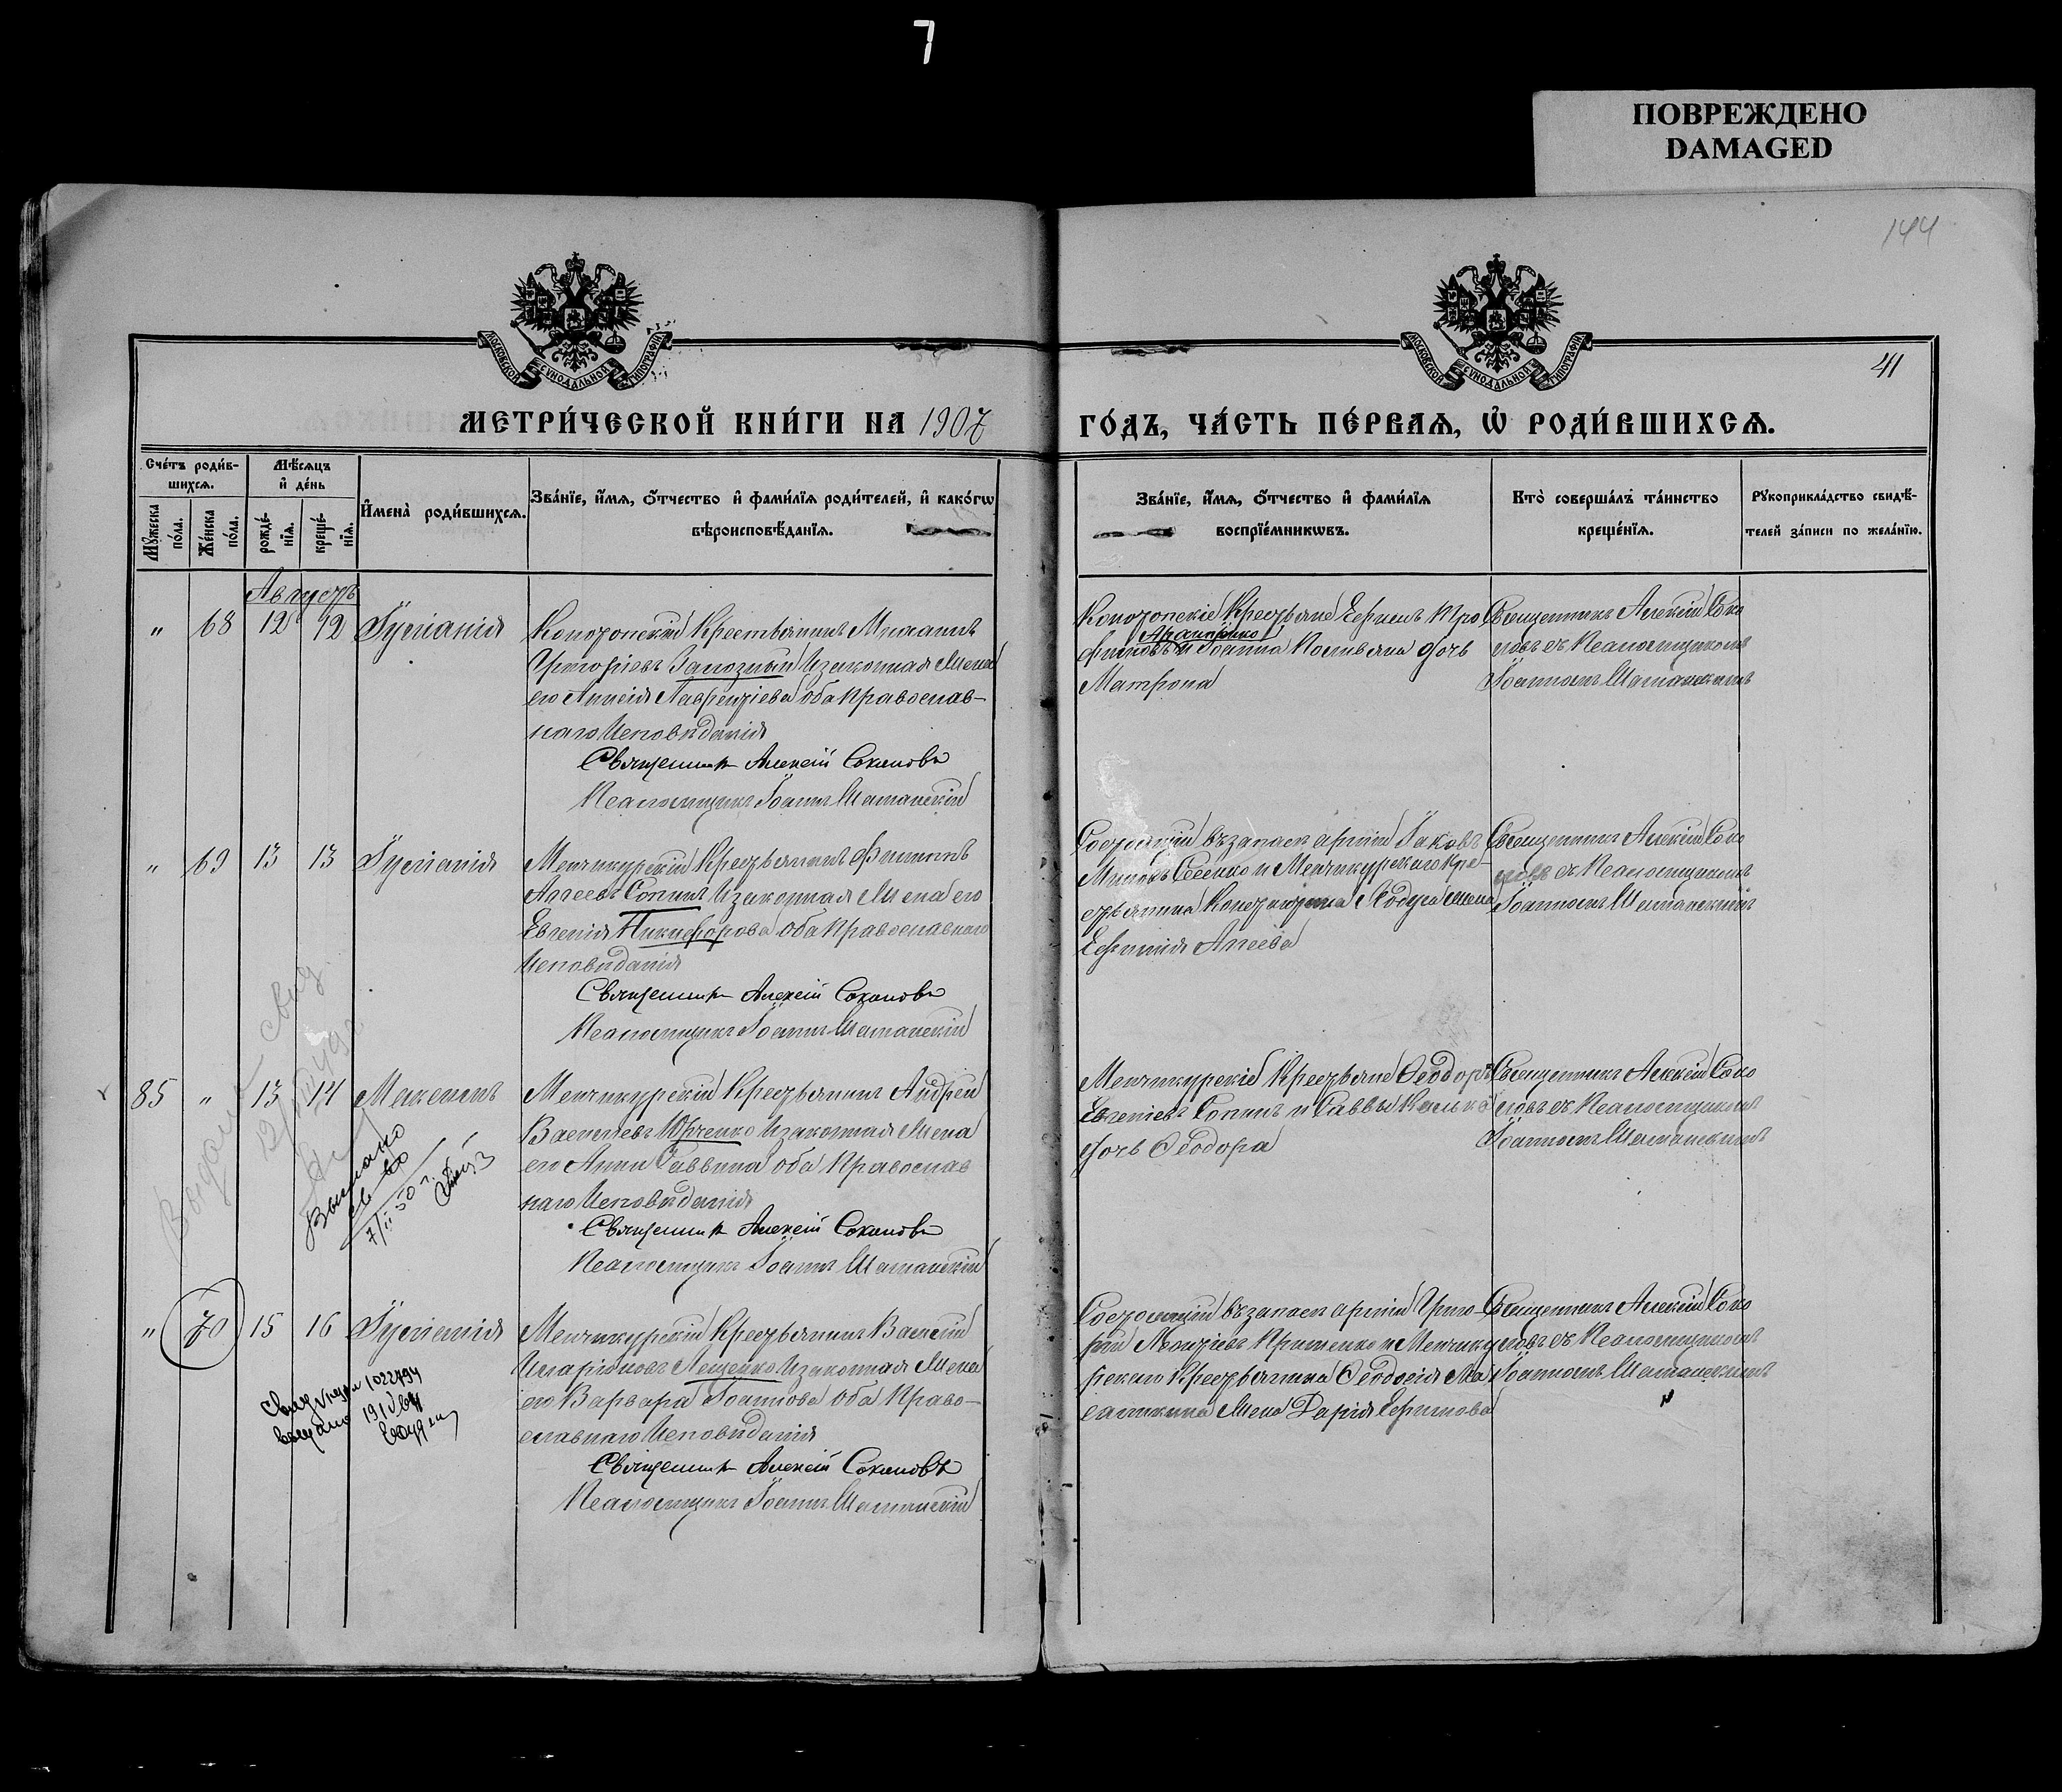 7
ПОВРЕЖДЕНО
DAMAGED
144
МОСКОВСКОЙ СУНОДАЛЬНОЙ ТИПОГРАФІИ
МОСКОВСКОЙ СУНОДАЛЬНОЙ ТИПОГРАФІИ
41
МЕТРИ́ЧЕСКОЙ КНИ́ГИ НА 1907
ГО́ДЪ, ЧА́СТЬ ПЕ́РВАѦ, Ѡ҆ РОДИ́ВШИХСѦ.
Сче́тъ роди́в-
шихсѧ.
Мꙋ́жеска по́ла.
Же́нска по́ла.
Мѣ́сѧцъ
и҆ де́нь
рожде́-
нїѧ.
креще́-
нїѧ.
И҆мена̀ роди́вшихсѧ.
Зва́нїе, и҆́мѧ, ѻ҆́тчество и҆ фами́лїѧ роди́телей, и҆ како́гѡ
вѣроисповѣ́данїѧ.
Зва́нїе, и҆́мѧ, ѻ҆́тчество и҆ фами́лїѧ
воспрїе́мникѡвъ.
Кто̀ соверша́лъ та́инство
креще́нїѧ.
Рꙋкоприкла́дство свидѣ́-
телей за́писи по жела́нїю.
Августъ
" 68 12 12 Іуліанія
Конотопскій Крестьянинъ Михаилъ
Григоріевъ Запозный и законная жена
его Анисія Лаврентіева оба православ-
наго исповѣданія
Священникъ Алексій Соколовъ
Псаломщикъ Іоаннъ Шаманскій
Конотопскіе Крестьяне Ефимъ Тро
фимовъ и Іоанна дочь
Матрона
Священникъ Алексій Соко
ловъ съ Псаломщикомъ
Іоанномъ Шаманскимъ
" 69 13 13 Іуліанія
Менчикурскій Крестьянинъ Филиппъ
Агеевъ Сопинъ и законная жена его
Евгенія Никифорова оба православнаго
исповѣданія
Священникъ Алексій Соколовъ
Псаломщикъ Іоаннъ Шаманскій
Состоящій въ запасѣ арміи Іаковъ
и Менчикурскаго Кре-
стьянина жена
Ефимія Агеева
Священникъ Алексій Соко
ловъ съ Псаломщикомъ
Іоанномъ Шаманскимъ
85 " 13 14 Максимъ
Менчикурскій Крестьянинъ Андрей
Васильевъ Юрченко и законная жена
его Анна Саввина оба Православ
наго исповѣданія
Священникъ Алексій Соколовъ
Псаломщикъ Іоаннъ Шаманскій
Менчикурскіе Крестьяне Ѳеодоръ
Евгеніевъ Сопинъ и Саввы
дочь Ѳеодора
Священникъ Алексій Соко
ловъ съ Псаломщикомъ
Іоанномъ Шаманскимъ
Выдано
св-во
7/II 50 г.
" 70 15 16 Іуліанія
Менчикурскій Крестьянинъ Василій
Иларіоновъ Лещенко и законная жена
его Варвара Іоаннова оба Право-
славнаго исповѣданія
Священникъ Алексій Соколовъ
Псаломщикъ Іоаннъ Шаманскій
Состоящій въ запасѣ арміи Григо-
рій Леонтіевъ и Менчику
рскаго Крестьянина Ѳеодосія
жена Дарія Ефимова
Священникъ Алексій Соко
ловъ съ Псаломщикомъ
Іоанномъ Шаманскимъ
1022794
выдано